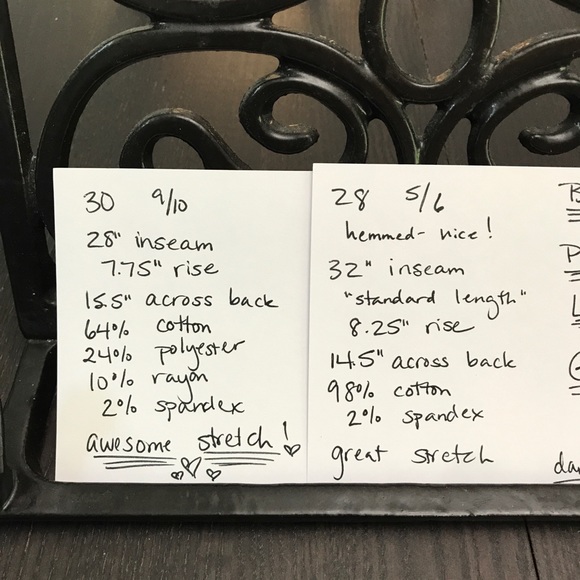 30 9/10
28" inseam
7.75" rise
15.5" across back
64% cotton
24% polyester
10% rayon
2% spandex
awesome stretch!
28 5/6
hemmed- nice!
32" inseam
"standard length"
8.25" rise
14.5" across back
98% cotton
2% spandex
great stretch